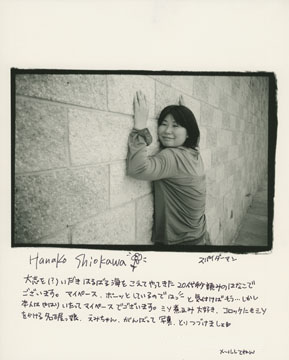 Hanako Shiokawa
スパイダーマン
大志を(?)いだきはるばる海をこえてやってきた20代秒読みのはなこで
ございます。マイペース、ボーッとしているのではっ と気付けばもう…しかし
本人はやはりいたってマイペースでございます。ミソ煮込み大好き、コロッケにもミソ
をかける名古屋っ娘、えみちゃん、がんばって写真、とりつづけましょ